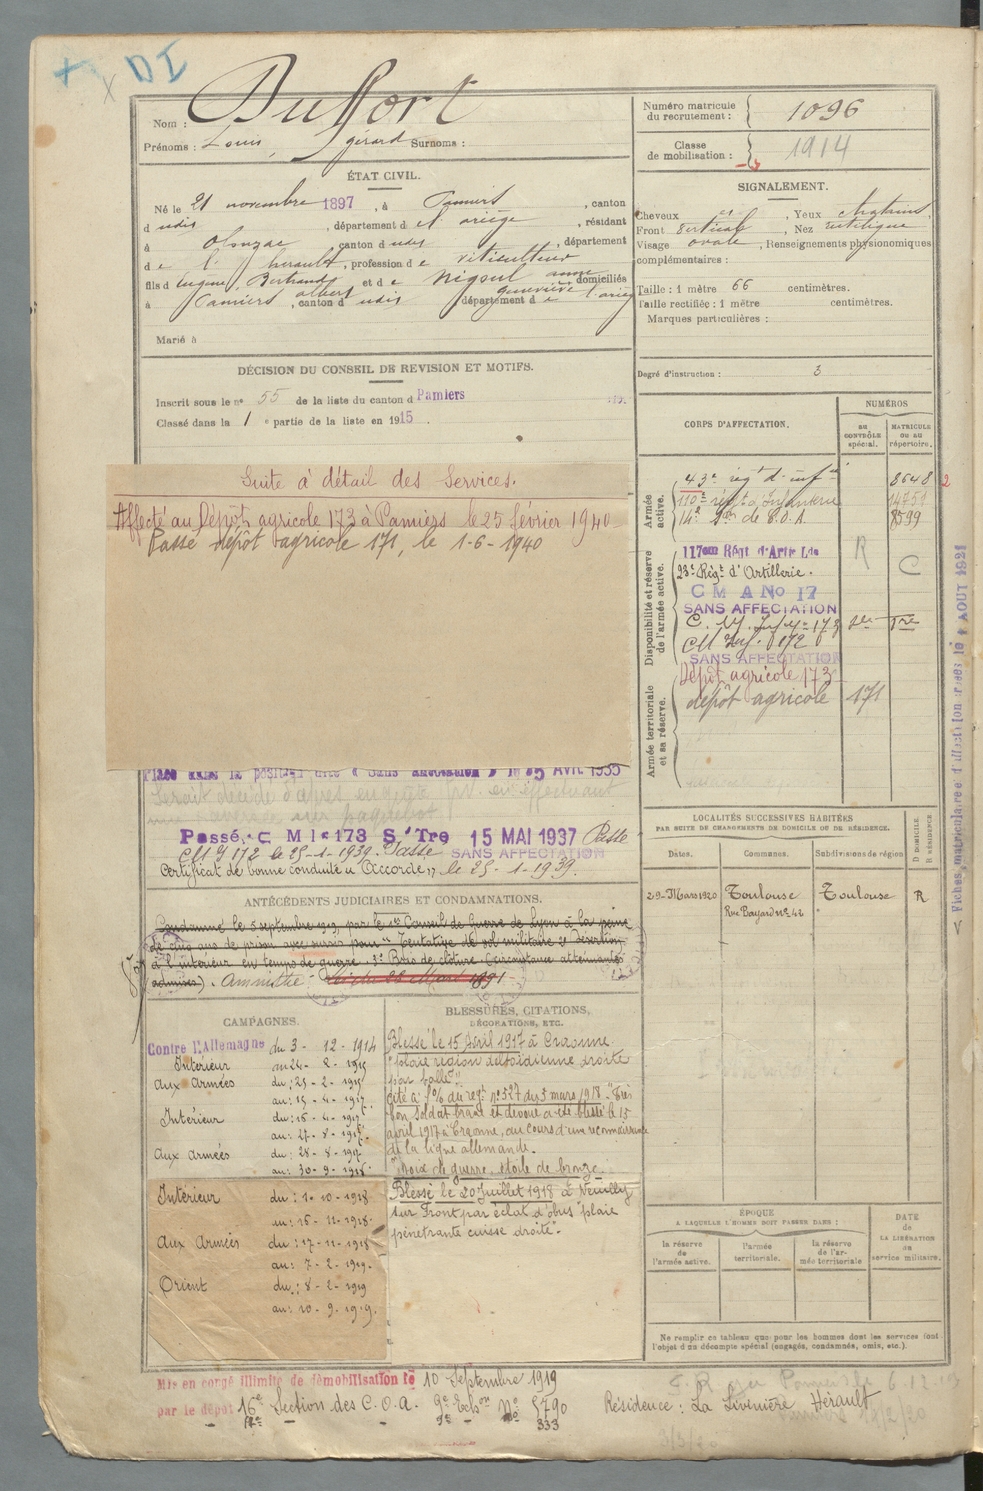 DI
Nom : Duffort
Prénoms : Louis, gérard Surnoms :
ÉTAT CIVIL.
Né le 21 novembre 1897, à Pamiers, canton
dudis, département de l'ariège, résidant
à Olonzac, canton dudis, département
de l'herault, profession de viticulteur
fils d'Eugène, Bertrand, albert et de Nigoul anne geneviève domiciliés
à Pamiers, canton dudis département de l'ariège
Marié à
DÉCISION DU CONSEIL DE REVISION ET MOTIFS.
Inscrit sous le no 55 de la liste du canton d Pamiers
Classé dans la 1 e partie de la liste en 1915.
Suite à détail des Services.
Affecté au Dépôt agricole 173 à Pamiers le 25 février 1940
Passé dépôt agricole 171, le 1-6-1940
Placé dans la position dite « Sans affectation » le 5 AVR 1935
Passé C M I 173 S/Tre 15 MAI 1937 Passé
CM I 172 le 25-1-1939. Passé SANS AFFECTATION
Certificat de bonne conduite "Accordé", le 25-1-1939.
ANTÉCÉDENTS JUDICIAIRES ET CONDAMNATIONS.
Condamné le 5 septembre 1919, par le 1er Conseil de Guerre de Lyon à la peine
de cinq ans de prison avec sursis pour "Tentative de vol militaire 2° Désertion
à l'intérieur en temps de guerre. 3° Bris de clôture. (Circonstances atténuantes
admises). Amnistié Loi du 26 Mars 1891
CAMPAGNES.
Contre l'Allemagne du 3-12-1914
Intérieur au 24-2-1915
aux Armées du: 25-2-1915
au: 15-4-1917
Intérieur du: 16-4-1917
au: 27-8-1917
aux armées du: 28-8-1917
au: 30-9-1918
Intérieur du: 1-10-1918
au: 16-11-1918
Aux Armées du: 17-11-1918
au: 7-2-1919
Orient du: 8-2-1919
au: 10-9-1919.
BLESSURES, CITATIONS,
DÉCORATIONS, ETC.
Blessé le 15 Avril 1917 à Craonne
"plaie région deltoïdienne droite
par balle".
Cité à l'O/6 du régt n° 527 du 5 mars 1918. "Très
bon soldat brave et dévoué a été blessé le 15
avril 1917 à Craonne, au cours d'une reconnaissance
de la ligne allemande.
Croix de guerre, étoile de bronze
Blessé le 20 Juillet 1918 à Neuilly
sur Front par éclat d'obus "plaie
pénétrante cuisse droite".
Mis en congé illimité de démobilisation le 10 Septembre 1919
par le dépôt 16e Section des C.O.A. 9e Echon No 5790
17e 9e no 333
Résidence : La Livinière Hérault
Numéro matricule
du recrutement : 1096
Classe
de mobilisation : 1914
SIGNALEMENT.
Cheveux, Yeux chatains,
Front vertical, Nez rectiligne
Visage ovale, Renseignements physionomiques
complémentaires :
Taille : 1 mètre 66 centimètres.
Taille rectifiée : 1 mètre centimètres.
Marques particulières :
Degré d'instruction : 3
CORPS D'AFFECTATION.
NUMÉROS
AU CONTRÔLE spécial.
MATRICULE OU AU répertoire.
Armée active.
43e régt d'infie 8648 2
110e régt d'Infanterie 14751
14e Son de C.O.A. 8599
Disponibilité et réserve de l'armée active.
117eme Régt d'Artie Lde R
23e Régt d'Artillerie. C
C M A No 17
SANS AFFECTATION
C. M. Infie 173
CM Inf. 172
SANS AFFECTATION
Armée territoriale et sa réserve.
Dépôt agricole 173
dépôt agricole 171
LOCALITÉS SUCCESSIVES HABITÉES
PAR SUITE DE CHANGEMENTS DE DOMICILE OU DE RÉSIDENCE.
Dates. Communes. Subdivisions de région D DOMICILE. R RÉSIDENCE
29-Mars 1920 Toulouse Toulouse R
Rue Bayard no 42
ÉPOQUE
A LAQUELLE L'HOMME DOIT PASSER DANS :
la réserve de l'armée active.
l'armée territoriale.
la réserve de l'armée territoriale
DATE de LA LIBÉRATION du service militaire.
Ne remplir ce tableau que pour les hommes dont les services font
l'objet d'un décompte spécial (engagés, condamnés, omis, etc.).